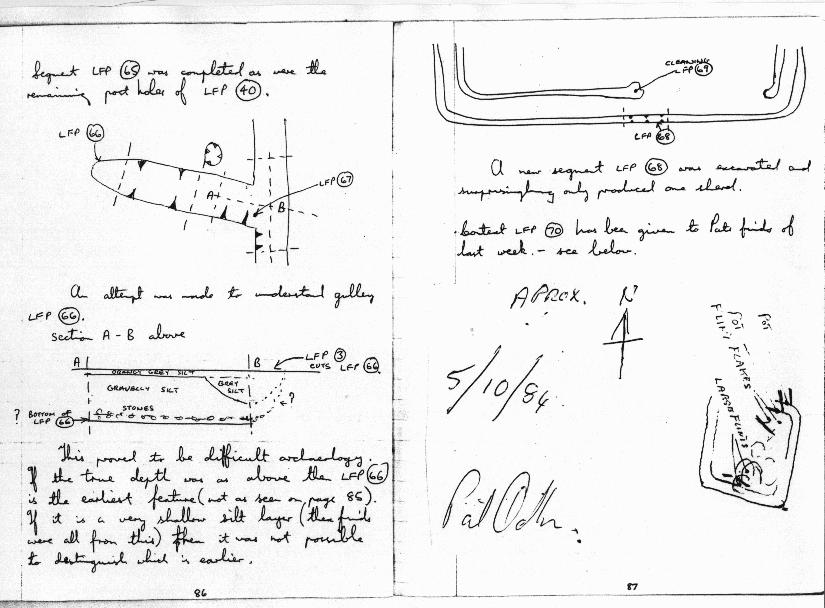 Segment LFP 65 was completed as were the
remaining post holes of LFP 40.
LFP 66
LFP 67
A
B
An attempt was made to understand gulley
LFP 66.
section A - B above
A
B
LFP 3
CUTS LFP 66
ORANGY GREY SILT
GRAVELLY SILT
GREY
SILT
STONES
?
? BOTTOM OF
LFP 66
This proved to be difficult archaeology.
If the true depth was as above then LFP 66
is the earliest feature (not as seen on page 85).
If it is a very shallow silt layer (then finds
were all from this) then it was not possible
to destinguish which is earlier.
86
CLEANING
LFP 69
LFP 68
A new segment LFP 68 was excavated and
surprisinghing only produced one sherd.
Context LFP 70 has been given to Pats finds of
last week. - see below.
APROX. N
5/10/84
POT
POT
FLINT FLAKES
LARGE FLINTS
87